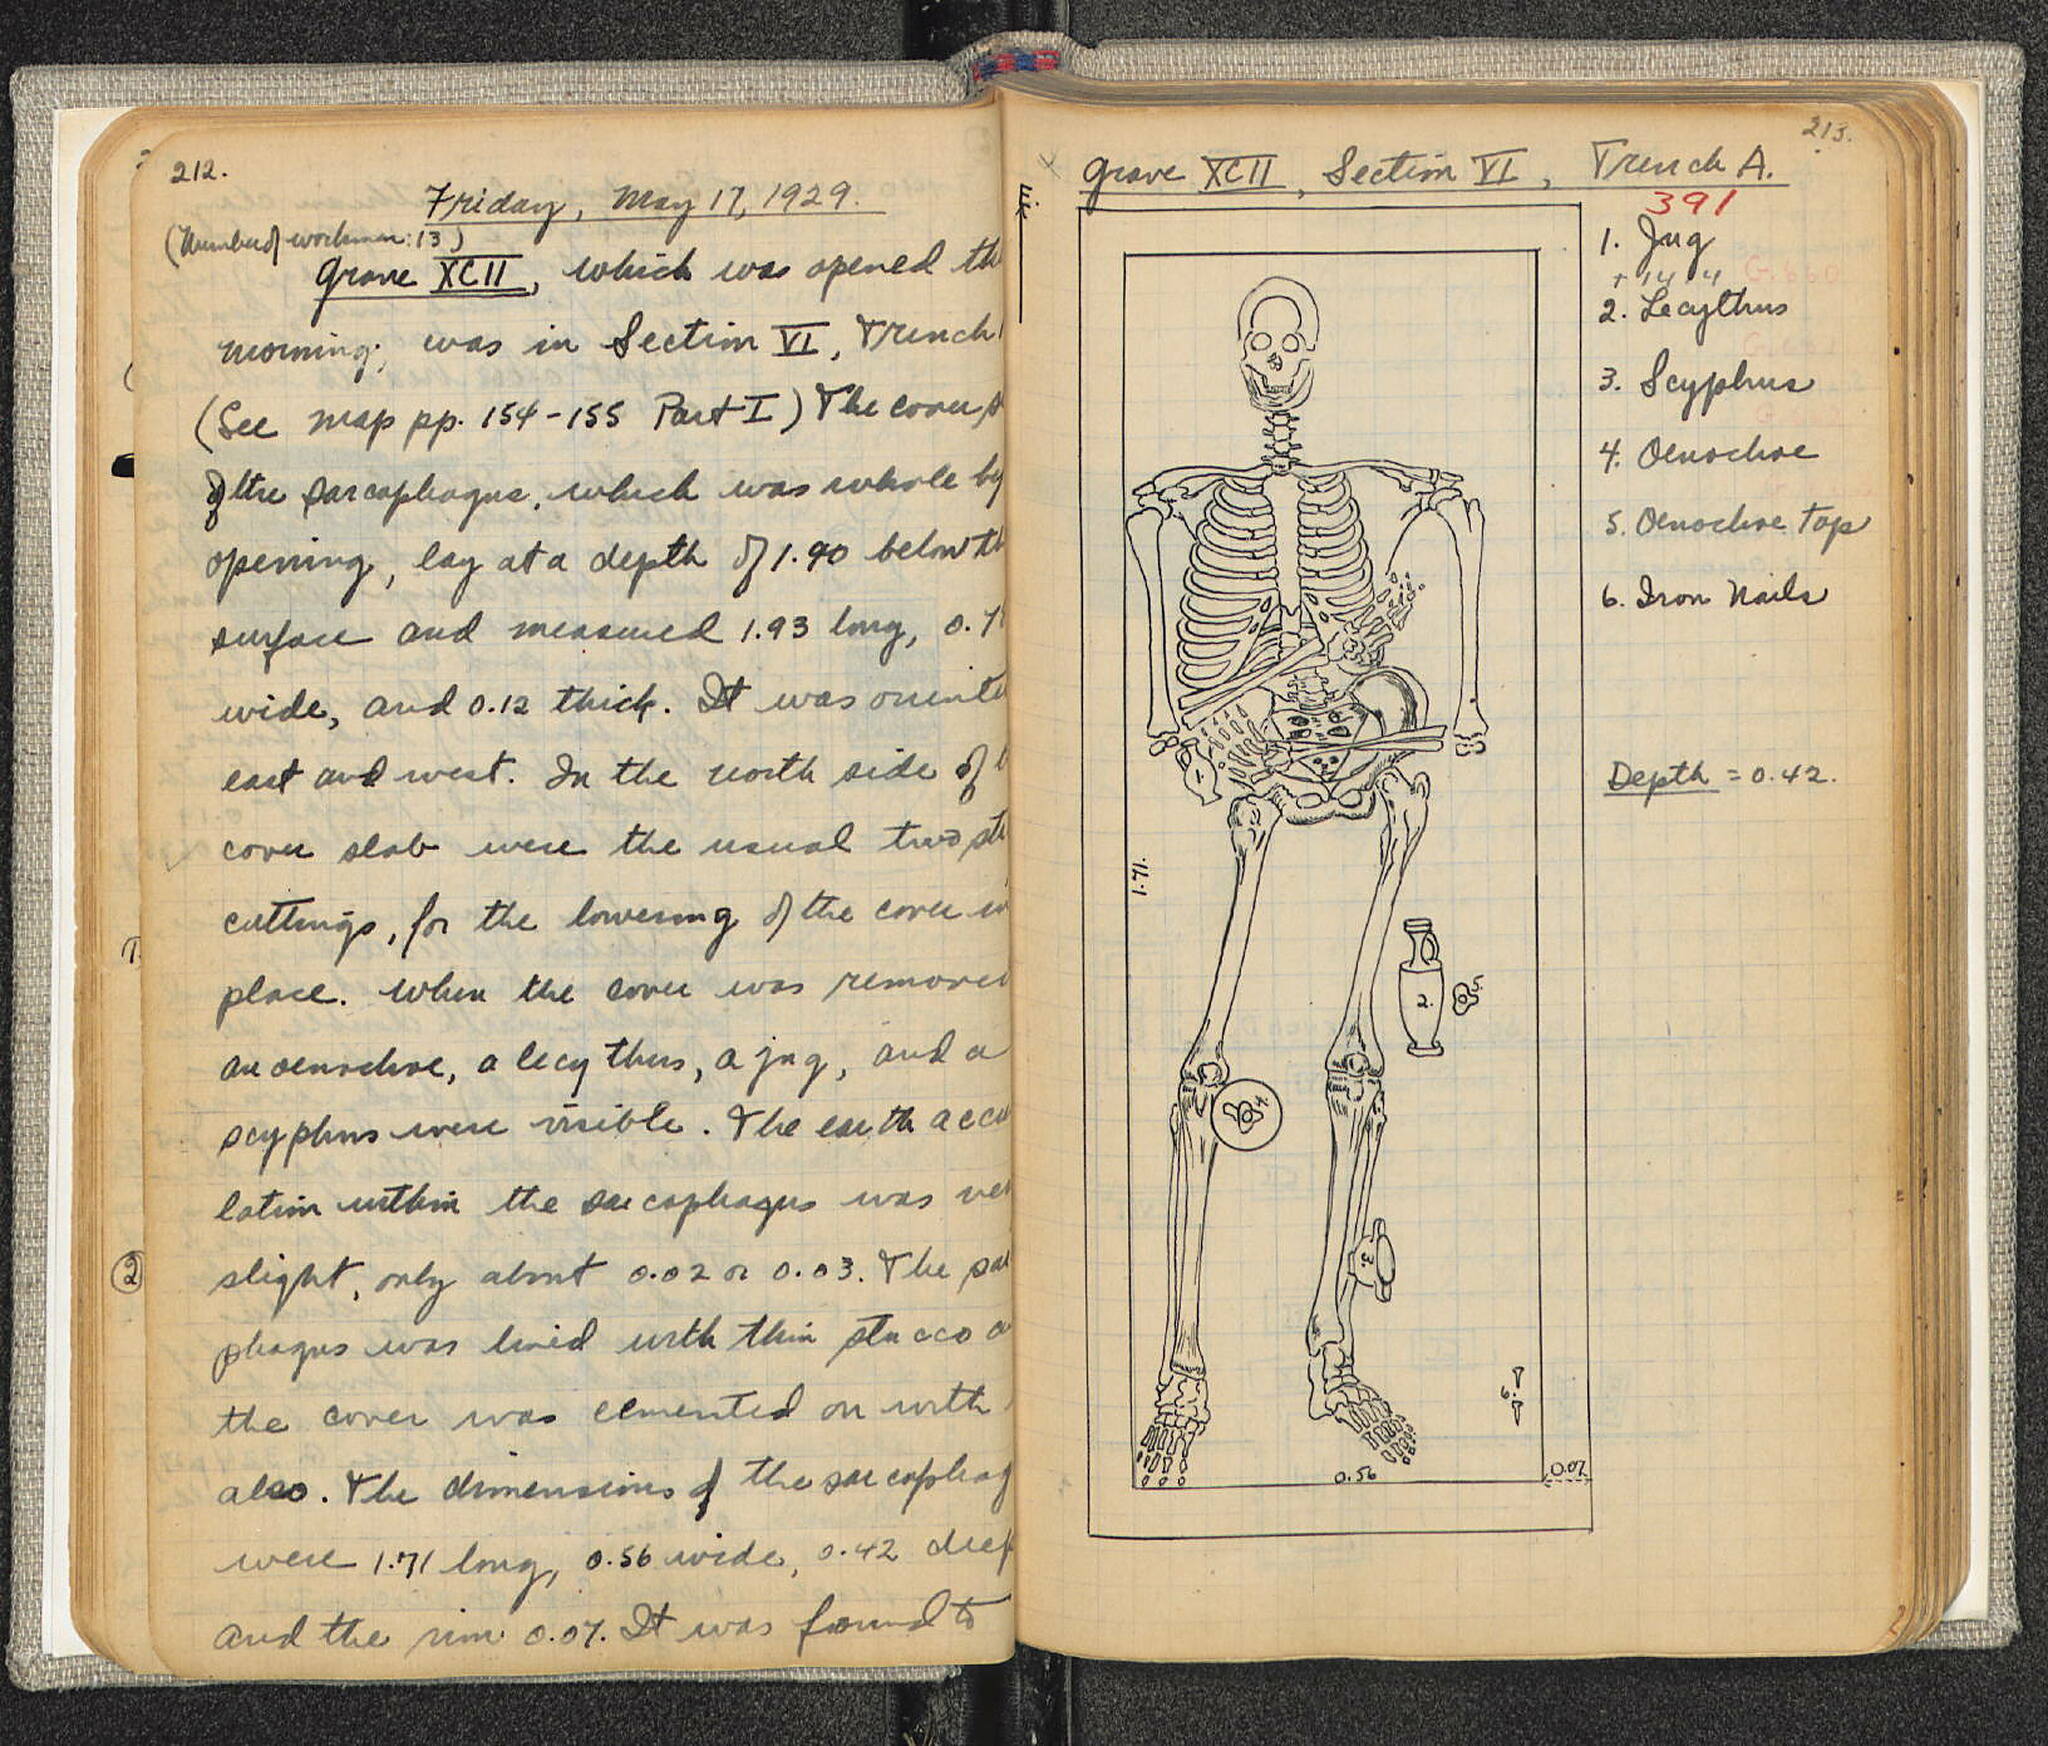 212.
Friday, May 17, 1929.
(Number of workmen: 13)
Grave XCII, which was opened
morning, was in Section VI, Trench
(See map pp. 154-155 Part I) The cover
of the sarcophagus, which was whole
opening, lay at a depth of 1.90 below
surface and measured 1.93 long,
wide, and 0.12 thick. It was
east and west. In the north side of
cover slab were the usual two
cuttings, for the lowering of the cover
place. When the cover was
an oenochoe, a lecythus, a jug, and a
scyphus were visible. The earth
lation within the sarcophagus was
slight, only about 0.02 or 0.03. The
phagus was lined with thin stucco
the cover was cemented on with
also. The dimensions of the
were 1.71 long, 0.56 wide, 0.42
and the rim 0.07. It was found to
1.
2
213.
Grave XCII, Section VI, Trench A.
391
1. Jug
2. Lecythus
3. Scyphus
4. Oenochoe
5. Oenochoe Top
6. Iron Nails
Depth = 0.42.
1.
1.71.
2.
5.
4.
3.
6.
0.56
0.07